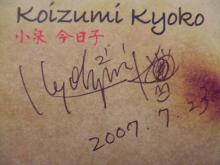 Koizumi Kyoko
小泉 今日子
2007.7.23